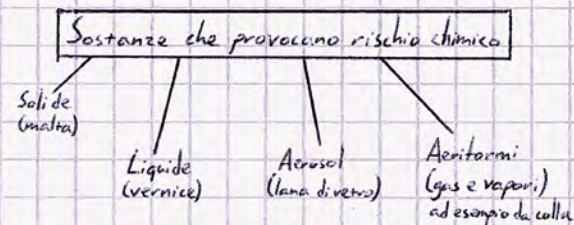 Sostanze che provocano rischio chimico
Solide
(malta)
Liquide
(vernice)
Aerosol
(lana di vetro)
Aeriformi
(gas e vapori)
ad esempio da colla